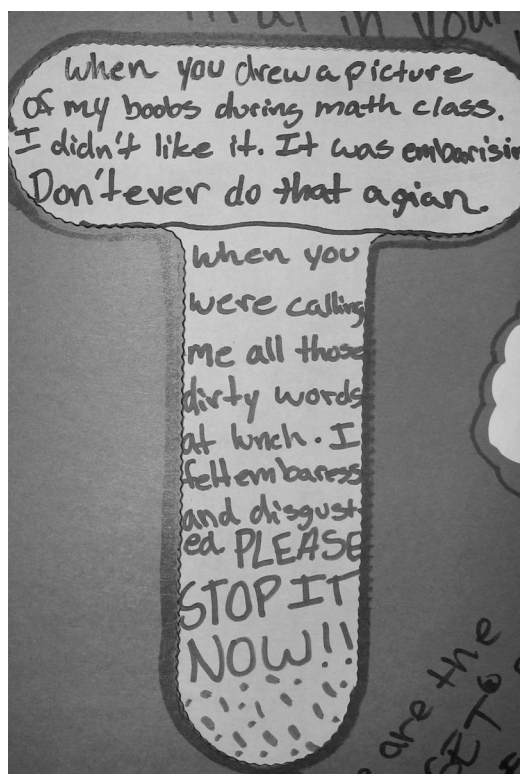 that in your
When you drew a picture
of my boobs during math class.
I didn't like it. It was embaarisin
Don't ever do that agian.
When you
were calling
me all those
dirty words
at lunch. I
felt embaress
and disgust
ed PLEASE
STOP IT
NOW!!
are the